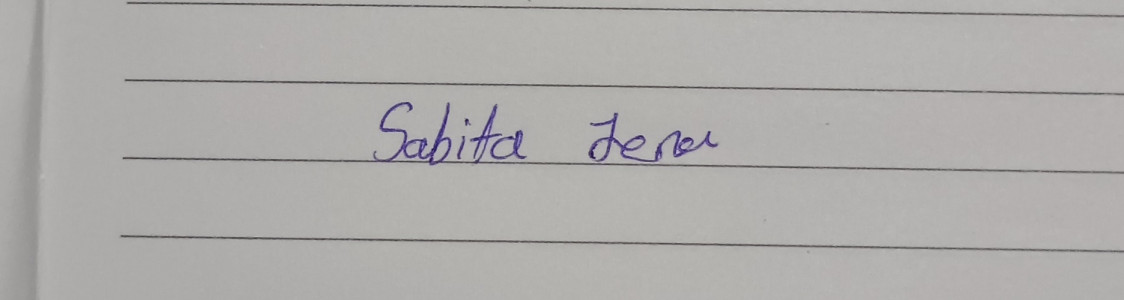 Sabita Jena